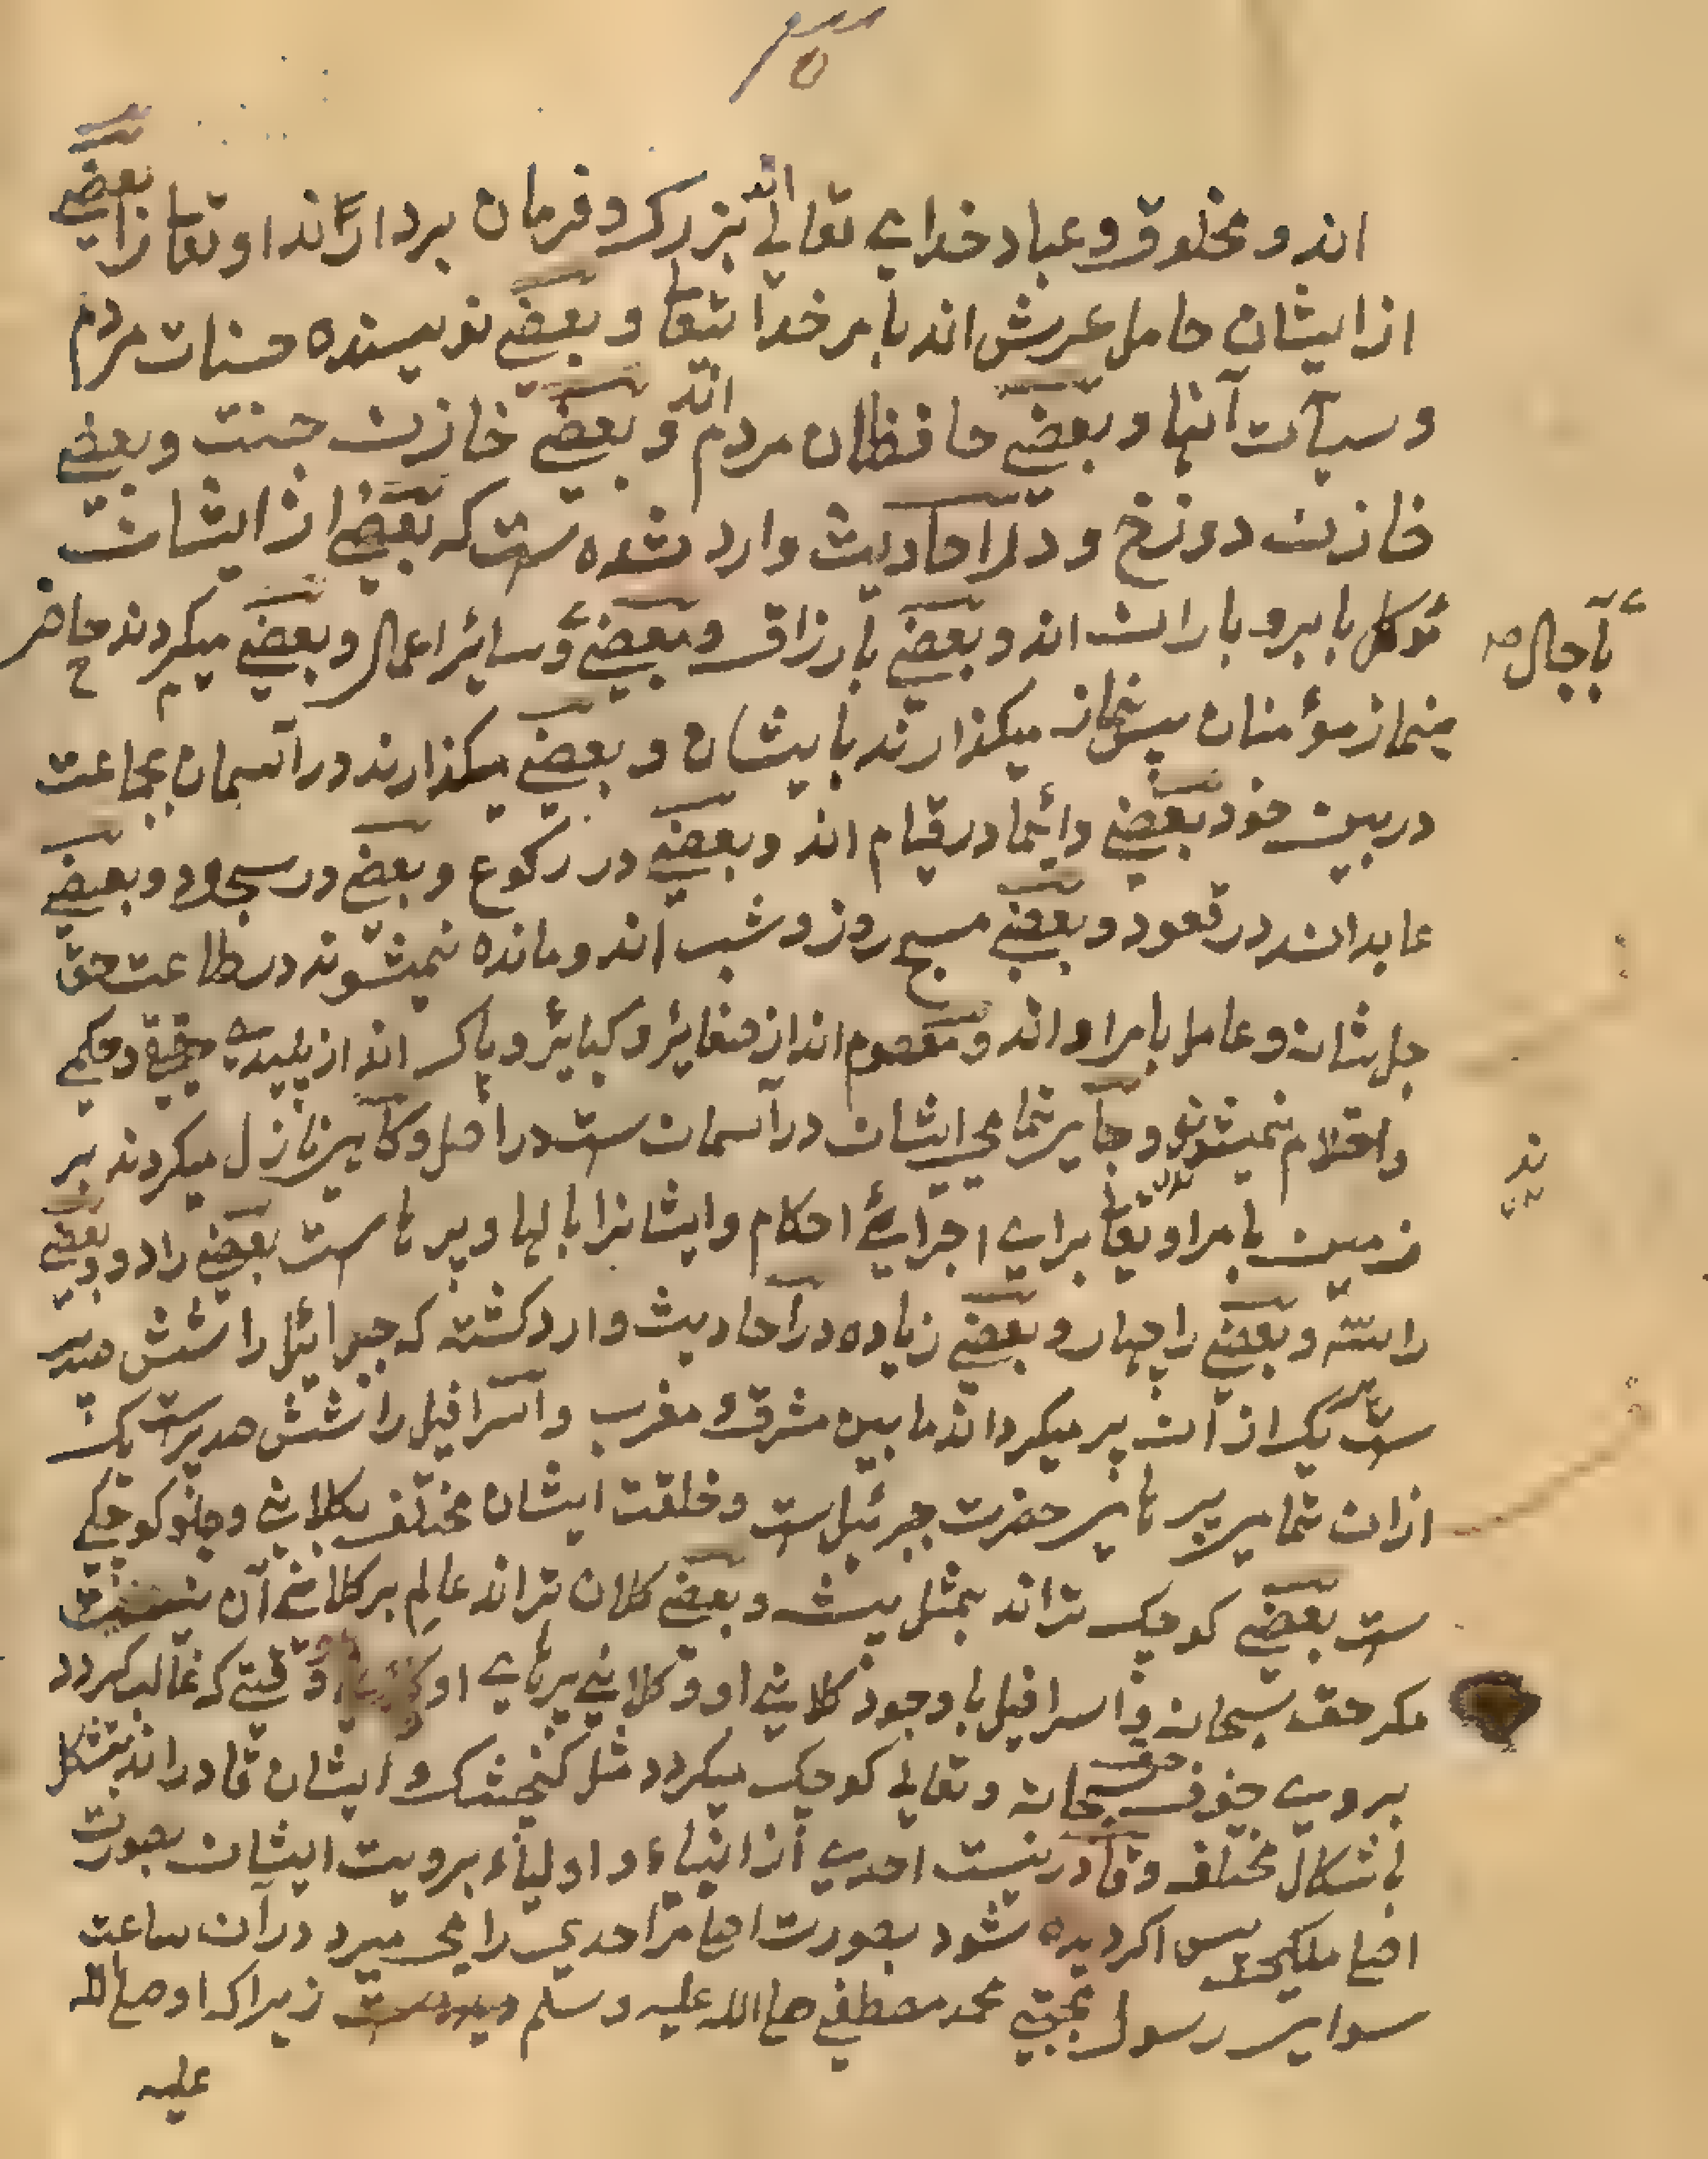 ۵
اند و مخلوق و عباد خدای تعالی اند بزرک و فرمان بردارانند او تعا را بعضی
از ایشان حامل عرش اند بامر خدا تعا و بعضی نویسنده حسنات مردم
و سیآت آنها و بعضی حافظان مردم اند و بعضی خازن جنت و بعضی
خازن دوزخ و در احادیث وارد شده ست که بعضی از ایشان
مؤکل بابر و باران اند و بعضی بارزاق و بعضی و سایر اعمال و بعضی میکردند حاضر
بآجال صح
بنماز مؤمنان نماز میکذارند بایشان و بعضی میکذارند در آسمان بجماعت
در بین خود بعضی دائما در قیام اند و بعضی در رکوع و بعضی در سجود و بعضی
عابدانند در قعود و بعضی مسبح روز و شب اند و مانده نمیشوند در طاعت حق
جل شانه و عامل بامر او اند و معصوم اند از صغایر و کبایر و پاک اند از پلیدی حقیقی و حکمی
واحتلام نمیشوند و جایهای ایشان در آسمان ست در اصل و کاهی نازل میکردند بر
زمین بامر او تعا برای اجرای احکام و ایشانرا بالها و پرها ست بعضی را دو و بعضی
را سه و بعضی را چهار و بعضی زیاده در احادیث وارد کشته که جبرائیل را شش صد پر
ست یک از آن پر میکرداند ما بین مشرق و مغرب و اسرافیل را شش صد پرست یک
ازان تمامی پرهای حضرت جبرئیل ست و خلقت ایشان مختلف بکلانی و کوچکی
ست بعضی کوچک تراند بمثل پشه و بعضی کلان تراند عالم بر کلانی آن نیست
مکر حق سبحانه و اسرافیل با وجود کلانی او و کلانی پرهای او وقتی که غالب کردد
بروی خوف حق سبحانه و تعالی کوچک میکردد مثل کنجشک و ایشان قادر اند بتشکل
باشکال مختلفه و قادر نیست احدی از انبیاء و اولیاء برویت ایشان بصورت
اصلی ملکی پس اکر دیده شود بصورت اصلی مر احدی را می میرد در آن ساعت
سوای رسول مجتبی محمد مصطفی صلی الله علیه و سلم زیرا که او صلی الله
علیه